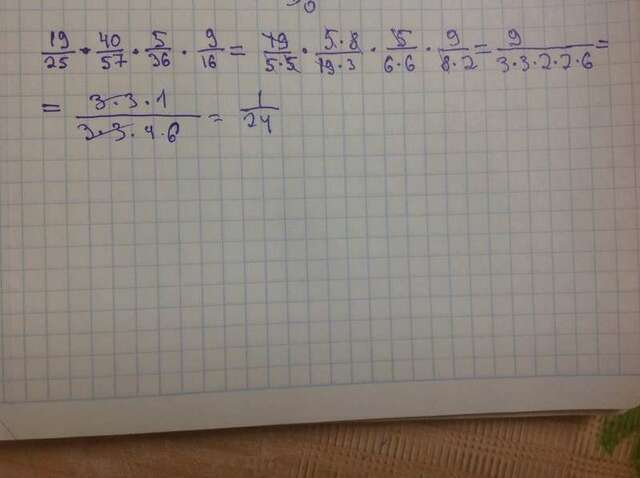 19/25 · 40/57 · 5/36 · 9/16 = 19/5·5 · 5·8/19·3 · 5/6·6 · 9/8·2 = 9/3·3·2·2·6 =
= 3·3·1/3·3·4·6 = 1/24